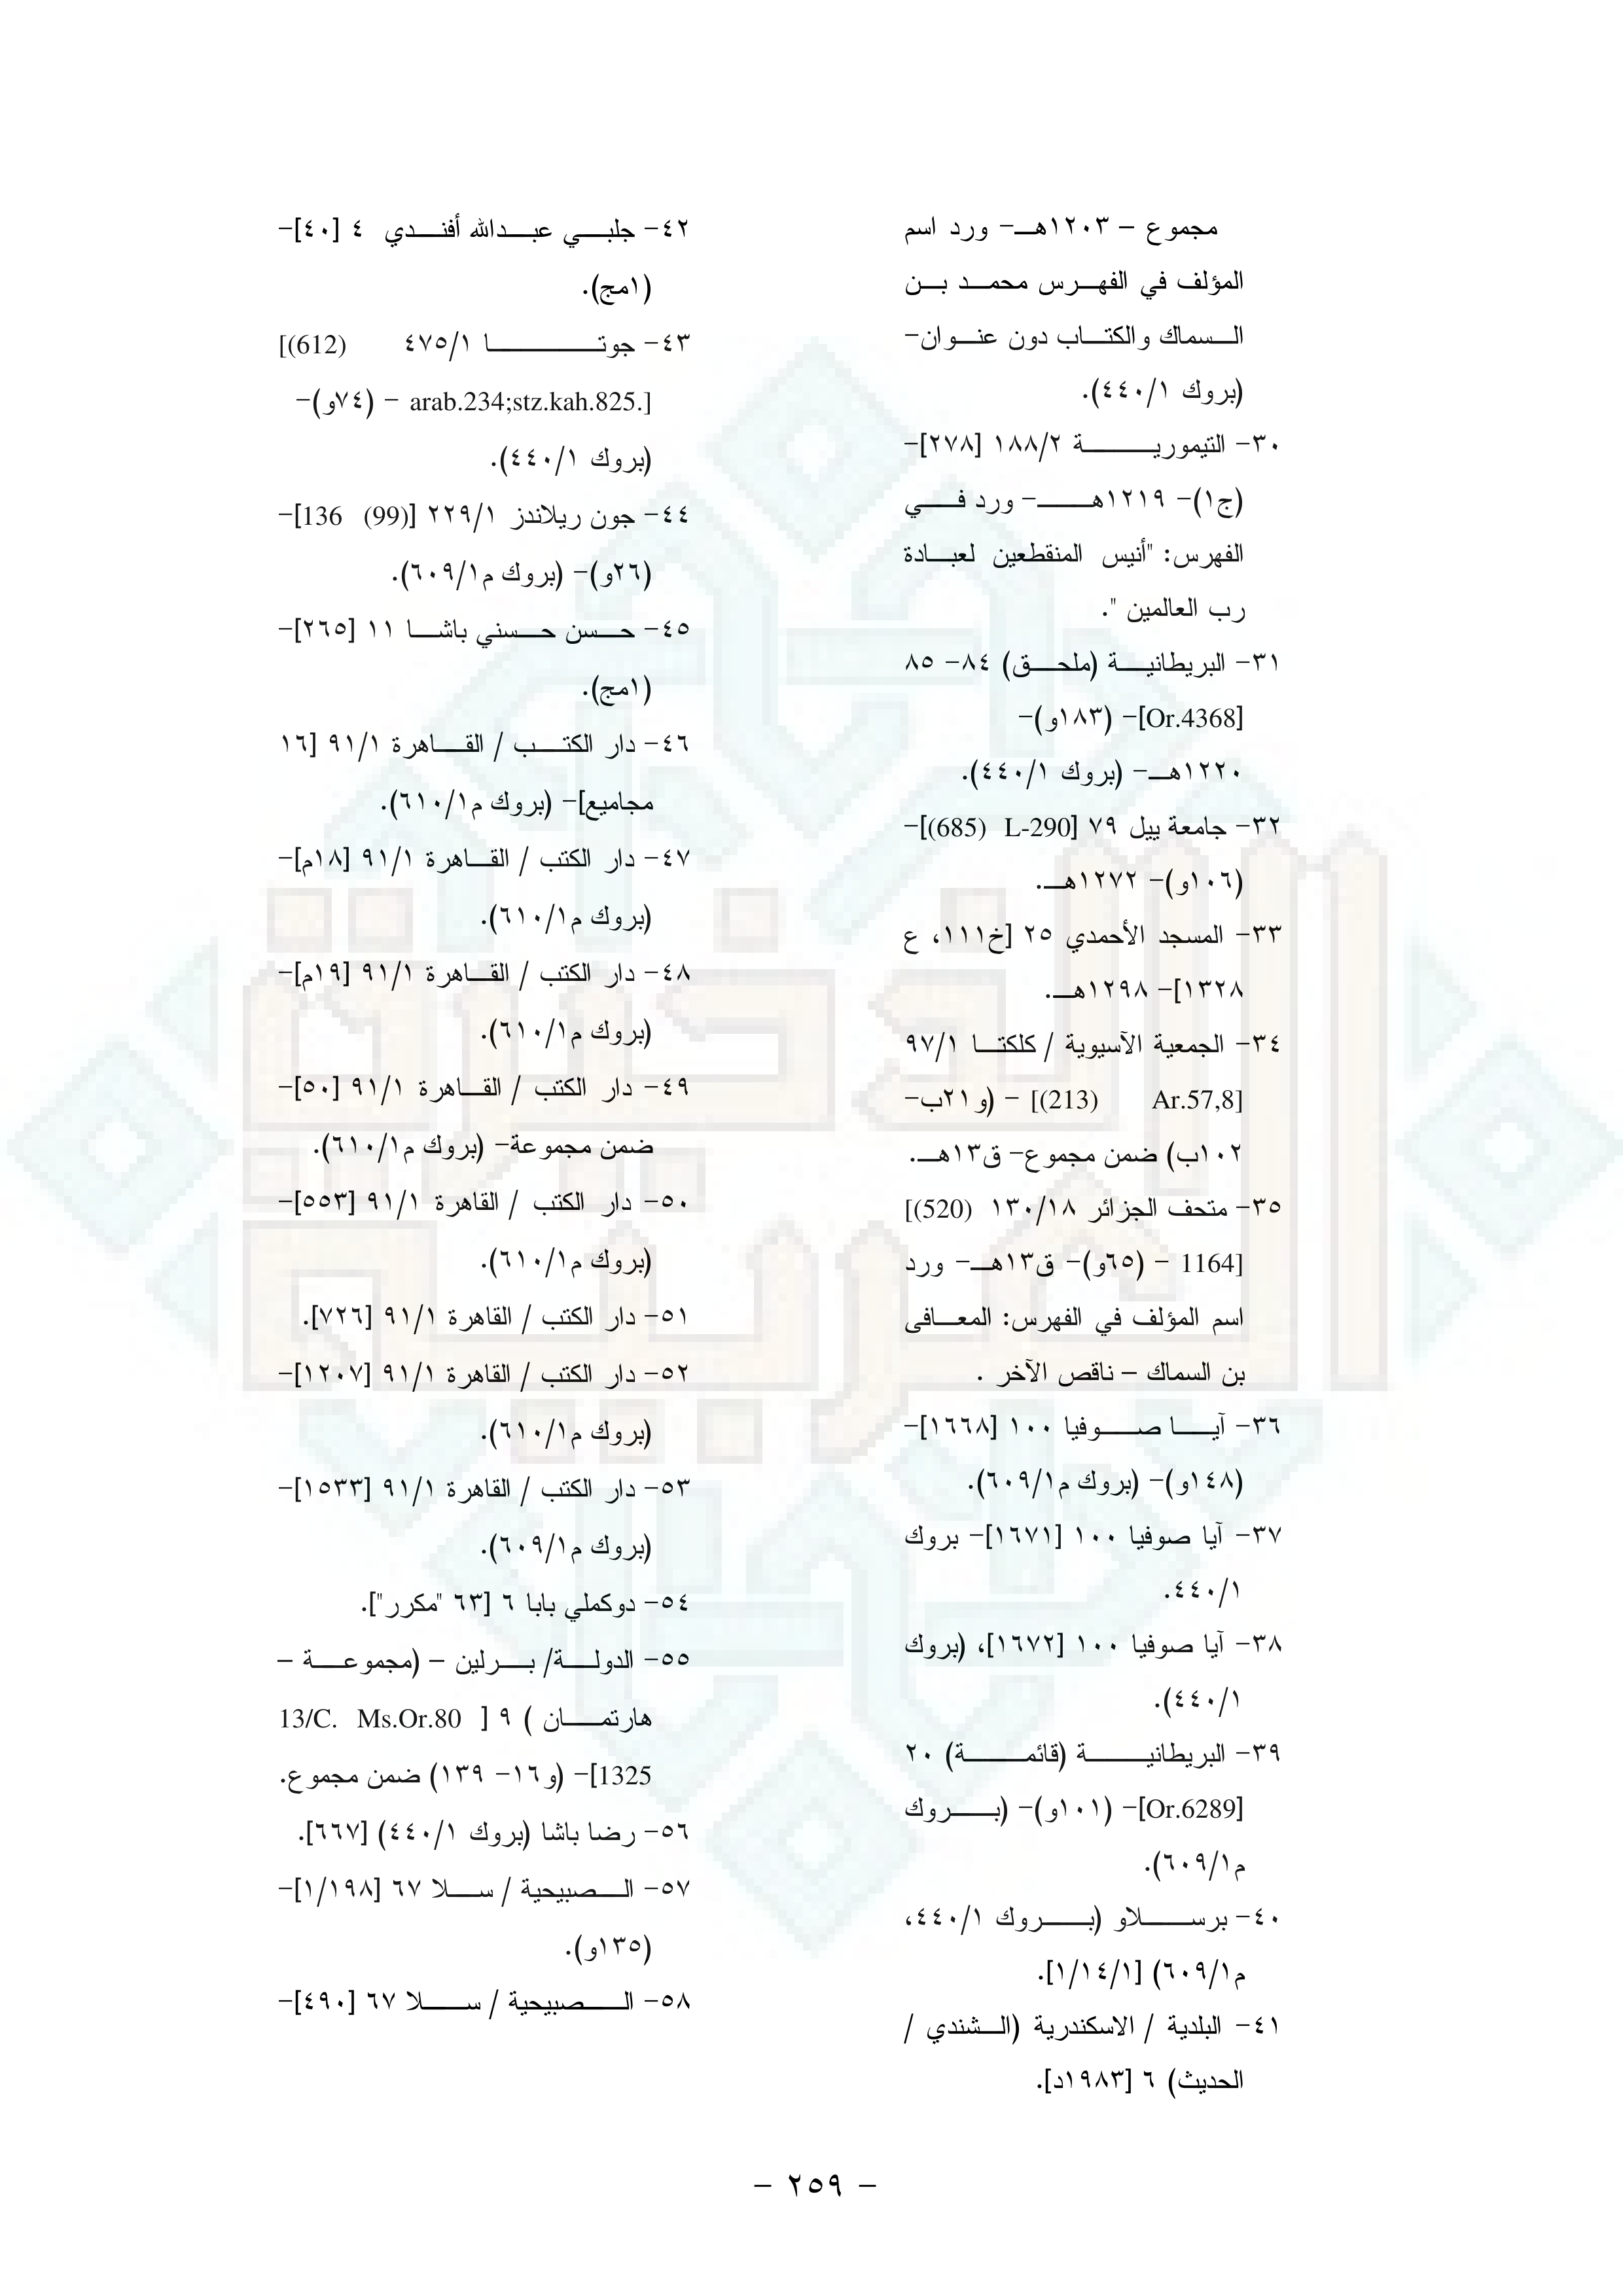 مجموع – ١٢٠٣هـ- ورد اسم
المؤلف في الفهرس محمد بن
السماك والكتاب دون عنوان-
(بروك ٤٤٠/١).
٣٠- التيمورية ١٨٨/٢ [٢٧٨]-
(ج١)- ١٢١٩هـ- ورد في
الفهرس: "أنيس المنقطعين لعبادة
رب العالمين ".
٣١- البريطانية (ملحق) ٨٤- ٨٥
[Or.4368]- (١٨٣و)-
١٢٢٠هـ- (بروك ٤٤٠/١).
٣٢- جامعة ييل ٧٩ [L-290 (685)]-
(١٠٦و)- ١٢٧٢هـ.
٣٣- المسجد الأحمدي ٢٥ [خ١١١، ع
١٣٢٨]- ١٢٩٨هـ.
٣٤- الجمعية الآسيوية / كلكتا ٩٧/١
[Ar.57,8 (213)] - (و٢١ب-
١٠٢ب) ضمن مجموع- ق١٣هـ.
٣٥- متحف الجزائر ١٣٠/١٨ [(520)
1164] - (٦٥و)- ق١٣هـ- ورد
اسم المؤلف في الفهرس: المعافى
بن السماك – ناقص الآخر .
٣٦- آيا صوفيا ١٠٠ [١٦٦٨]-
(١٤٨و)- (بروك م٦٠٩/١).
٣٧- آيا صوفيا ١٠٠ [١٦٧١]- بروك
٤٤٠/١.
٣٨- آيا صوفيا ١٠٠ [١٦٧٢]، (بروك
٤٤٠/١).
٣٩- البريطانية (قائمة) ٢٠
[Or.6289]- (١٠١و)- (بروك
م٦٠٩/١).
٤٠- برسلاو (بروك ٤٤٠/١،
م٦٠٩/١) [١/١٤/١].
٤١- البلدية / الاسكندرية (الشندي /
الحديث) ٦ [١٩٨٣د].
٤٢- جلبي عبدالله أفندي ٤ [٤٠]-
(١مج).
٤٣- جوتا ٤٧٥/١ [(612)
arab.234;stz.kah.825.] - (٧٤و)-
(بروك ٤٤٠/١).
٤٤- جون ريلاندز ٢٢٩/١ [(99) 136]-
(٢٦و)- (بروك م٦٠٩/١).
٤٥- حسن حسني باشا ١١ [٢٦٥]-
(١مج).
٤٦- دار الكتب / القاهرة ٩١/١ [١٦
مجاميع]- (بروك م٦١٠/١).
٤٧- دار الكتب / القاهرة ٩١/١ [١٨م]-
(بروك م٦١٠/١).
٤٨- دار الكتب / القاهرة ٩١/١ [١٩م]-
(بروك م٦١٠/١).
٤٩- دار الكتب / القاهرة ٩١/١ [٥٠]-
ضمن مجموعة- (بروك م٦١٠/١).
٥٠- دار الكتب / القاهرة ٩١/١ [٥٥٣]-
(بروك م٦١٠/١).
٥١- دار الكتب / القاهرة ٩١/١ [٧٢٦].
٥٢- دار الكتب / القاهرة ٩١/١ [١٢٠٧]-
(بروك م٦١٠/١).
٥٣- دار الكتب / القاهرة ٩١/١ [١٥٣٣]-
(بروك م٦٠٩/١).
٥٤- دوكملي بابا ٦ [٦٣ "مكرر"].
٥٥- الدولة/ برلين – (مجموعة –
هارتمان ) ٩ [ 13/C. Ms.Or.80
1325]- (و١٦- ١٣٩) ضمن مجموع.
٥٦- رضا باشا (بروك ٤٤٠/١) [٦٦٧].
٥٧- الصبيحية / سلا ٦٧ [١/١٩٨]-
(١٣٥و).
٥٨- الصبيحية / سلا ٦٧ [٤٩٠]-
- ٢٥٩ -
الذخائر
العربية